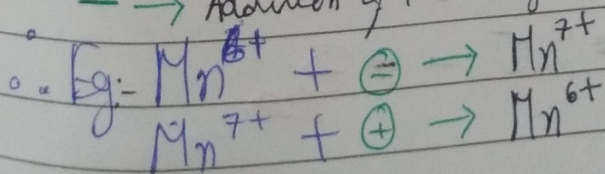 — — → Addition of
∴ Eg:- Mn⁶⁺ + ⊖ → Mn⁷⁺
Mn⁷⁺ + ⊕ → Mn⁶⁺